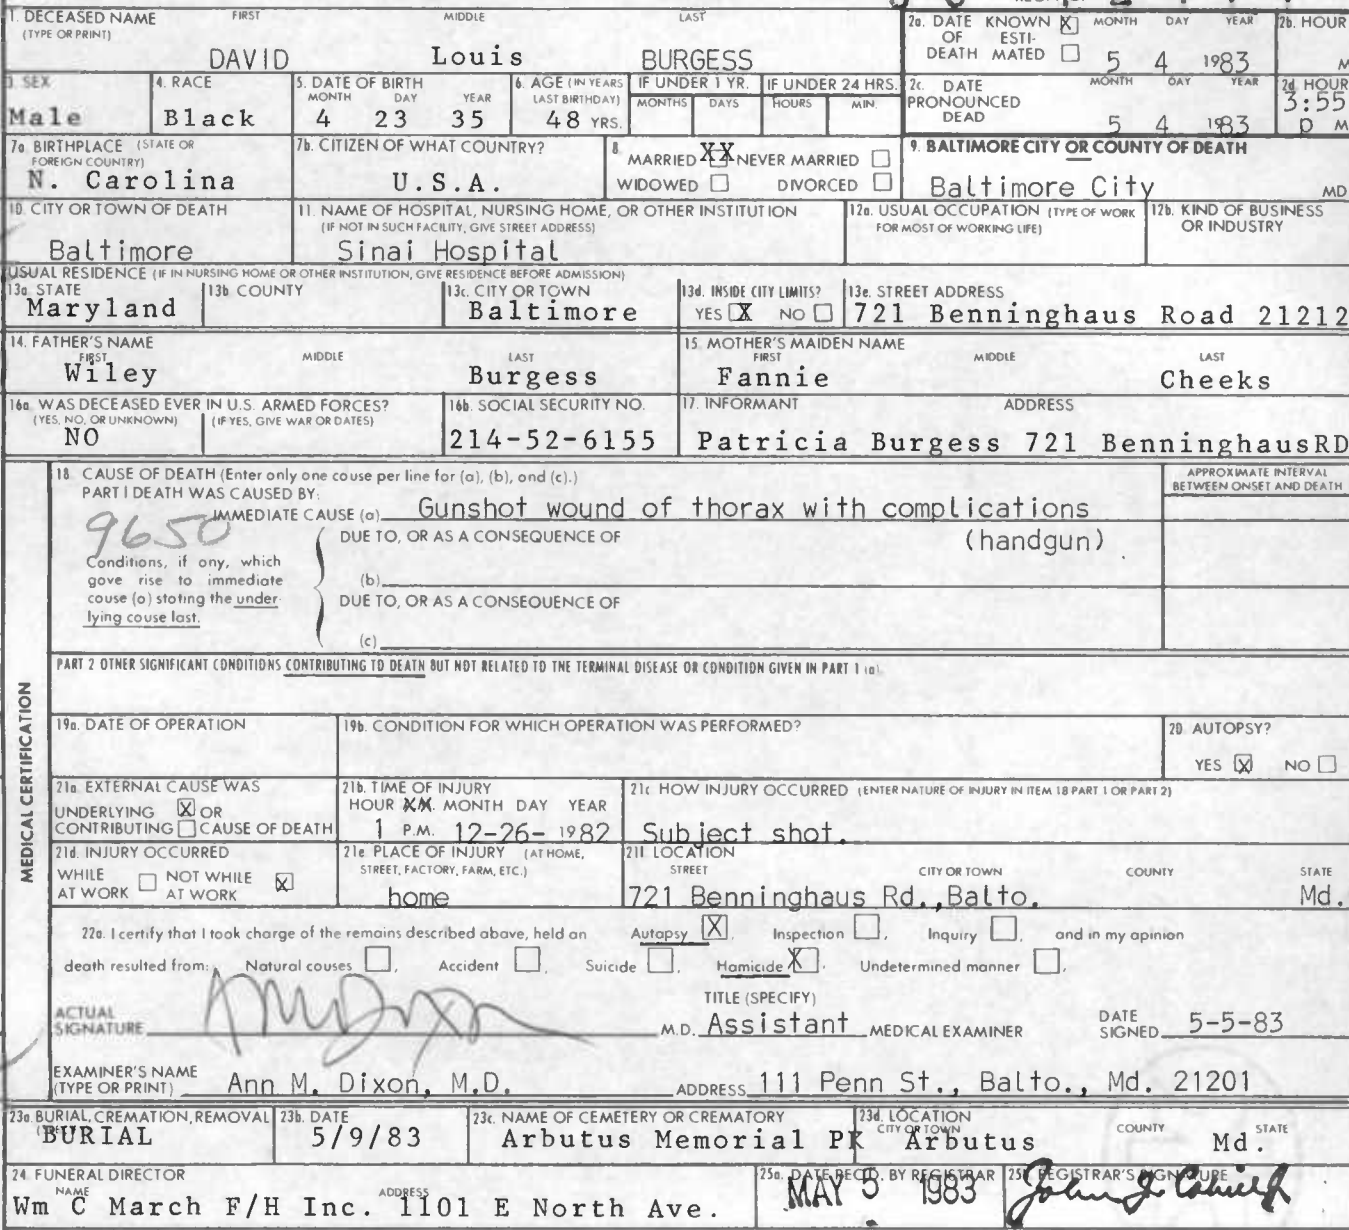 1. DECEASED NAME FIRST MIDDLE LAST
(TYPE OR PRINT)
DAVID Louis BURGESS
2a. DATE KNOWN X MONTH DAY YEAR
OF ESTI-
DEATH MATED
5 4 1983
2b. HOUR
M
3. SEX
Male
4. RACE
Black
5. DATE OF BIRTH
MONTH DAY YEAR
4 23 35
6. AGE (IN YEARS
LAST BIRTHDAY)
48 YRS.
IF UNDER 1 YR.
MONTHS DAYS
IF UNDER 24 HRS.
HOURS MIN.
2c. DATE MONTH DAY YEAR
PRONOUNCED
DEAD
5 4 1983
2d HOUR
3:55
p M
7a. BIRTHPLACE (STATE OR
FOREIGN COUNTRY)
N. Carolina
7b. CITIZEN OF WHAT COUNTRY?
U.S.A.
8.
MARRIED XX NEVER MARRIED
WIDOWED DIVORCED
9. BALTIMORE CITY OR COUNTY OF DEATH
Baltimore City MD
10. CITY OR TOWN OF DEATH
Baltimore
11. NAME OF HOSPITAL, NURSING HOME, OR OTHER INSTITUTION
(IF NOT IN SUCH FACILITY, GIVE STREET ADDRESS)
Sinai Hospital
12a. USUAL OCCUPATION (TYPE OF WORK
FOR MOST OF WORKING LIFE)
12b. KIND OF BUSINESS
OR INDUSTRY
USUAL RESIDENCE (IF IN NURSING HOME OR OTHER INSTITUTION, GIVE RESIDENCE BEFORE ADMISSION)
13a. STATE
Maryland
13b. COUNTY
13c. CITY OR TOWN
Baltimore
13d. INSIDE CITY LIMITS?
YES X NO
13e. STREET ADDRESS
721 Benninghaus Road 21212
14. FATHER'S NAME
FIRST MIDDLE LAST
Wiley Burgess
15. MOTHER'S MAIDEN NAME
FIRST MIDDLE LAST
Fannie Cheeks
16a. WAS DECEASED EVER IN U.S. ARMED FORCES?
(YES, NO, OR UNKNOWN) (IF YES, GIVE WAR OR DATES)
NO
16b. SOCIAL SECURITY NO.
214-52-6155
17. INFORMANT ADDRESS
Patricia Burgess 721 BenninghausRD
MEDICAL CERTIFICATION
18. CAUSE OF DEATH (Enter only one cause per line for (a), (b), and (c).)
PART I DEATH WAS CAUSED BY:
IMMEDIATE CAUSE (a) Gunshot wound of thorax with complications
9650
DUE TO, OR AS A CONSEQUENCE OF (handgun)
Conditions, if any, which
gave rise to immediate
cause (a) stating the under-
lying cause last.
(b)
DUE TO, OR AS A CONSEQUENCE OF
(c)
APPROXIMATE INTERVAL
BETWEEN ONSET AND DEATH
PART 2 OTHER SIGNIFICANT CONDITIONS CONTRIBUTING TO DEATH BUT NOT RELATED TO THE TERMINAL DISEASE OR CONDITION GIVEN IN PART 1 (a)
19a. DATE OF OPERATION
19b. CONDITION FOR WHICH OPERATION WAS PERFORMED?
20. AUTOPSY?
YES X NO
21a. EXTERNAL CAUSE WAS
UNDERLYING X OR
CONTRIBUTING CAUSE OF DEATH
21b. TIME OF INJURY
HOUR MONTH DAY YEAR
1 P.M. 12-26- 1982
21c HOW INJURY OCCURRED (ENTER NATURE OF INJURY IN ITEM 18 PART 1 OR PART 2)
Subject shot.
21d. INJURY OCCURRED
WHILE NOT WHILE
AT WORK AT WORK X
21e. PLACE OF INJURY (AT HOME,
STREET, FACTORY, FARM, ETC.)
home
21f. LOCATION
STREET CITY OR TOWN COUNTY STATE
721 Benninghaus Rd.,Balto. Md.
22a. I certify that I took charge of the remains described above, held an Autopsy X, Inspection , Inquiry , and in my opinion
death resulted from: Natural causes , Accident , Suicide , Homicide X, Undetermined manner .
TITLE (SPECIFY)
ACTUAL
SIGNATURE
M.D. Assistant MEDICAL EXAMINER
DATE
SIGNED 5-5-83
EXAMINER'S NAME
(TYPE OR PRINT) Ann M. Dixon, M.D. ADDRESS 111 Penn St., Balto., Md. 21201
23a. BURIAL, CREMATION, REMOVAL
BURIAL
23b. DATE
5/9/83
23c. NAME OF CEMETERY OR CREMATORY
Arbutus Memorial PK
23d. LOCATION
CITY OR TOWN COUNTY STATE
Arbutus Md.
24. FUNERAL DIRECTOR
NAME ADDRESS
Wm C March F/H Inc. 1101 E North Ave.
25a. DATE REC'D. BY REGISTRAR
MAY 5 1983
25b. REGISTRAR'S SIGNATURE